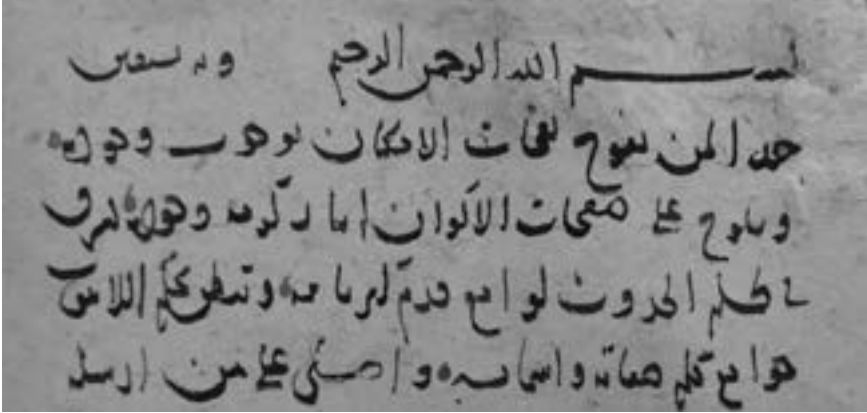 بسم الله الرحمن الرحيم وبه نستعين
حمدا لمن تفوح نفحات الامكان بوجوب وجوده
ويلوح على صفحات الاكوان اثار كرمه وجوده تشرق
في ظلم الحدوث لوامع قدم كبريائه وتنطق بحكم
جوامع كلم صفاته واسمائه واصلى على من ارسل